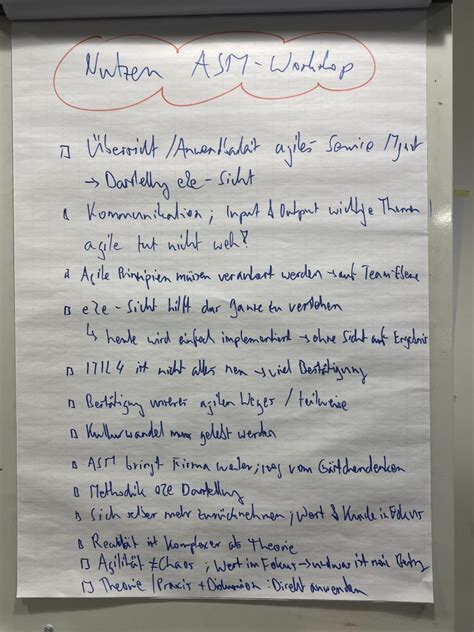 Nutzen ASM-Workshop
Übersicht / Anwendbarkeit agiles Service Mgmt
→ Darstellung e2e-Sicht
Kommunikation; Input & Output wichtige Themen
agile tut nicht weh?
Agile Prinzipien müssen verankert werden → auf Team-Ebene
e2e-Sicht hilft das ganze zu verstehen
↳ heute wird einfach implementiert → ohne Sicht auf Ergebnis
ITIL4 ist nicht alles neu → viel Bestätigung
Bestätigung unseres agilen Weges / teilweise
Kulturwandel muss gelebt werden
ASM bringt Firma weiter, weg vom Gärtchendenken
Methodik e2e Darstellung
Sich selber mehr zurücknehmen; Wert & Kunde in Fokus
Realität ist komplexer als Theorie
Agilität ≠ Chaos; Wert im Fokus → und was ist mein Beitrag
Theorie / Praxis + Diskussion: Direkt anwenden